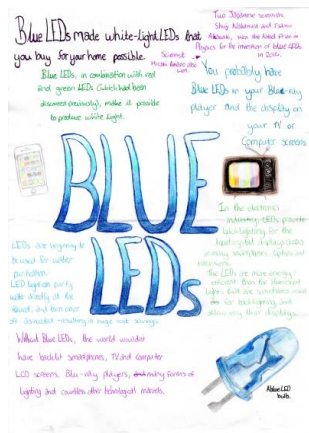 Blue LEDs made white-light LEDs that
you buy for your home possible.
Two Japanese scientists,
Shuji Nakamura and Isamu
Akasaki, won the Nobel Prize in
Physics for the invention of blue LEDs
in 2014.
Scientist
also
won.
Blue LEDs, in combination with red
and green LEDs (which had been
discovered previously), make it possible
to produce white light.
You probably have
Blue LEDs in your Blue-ray
player and the display on
your TV or
Computer screens
BLUE
LEDs
In the electronics
industry, LEDs provide
backlighting for the
liquid crystal displays (LCDs)
in many smartphones, laptops and
The LEDs are more energy-
efficient than the fluorescent
lights that are sometimes used
for backlighting, and
allow very thin displays.
LEDs are beginning to
be used for water
purification.
LED lights can purify
water directly at the
faucet, and then once
off as needed - resulting in huge cost savings.
Without Blue LEDs, the world wouldn't
have backlit smartphones, TV and computer
LCD screens, Blu-ray players, and many forms of
lighting and countless other technological marvels.
A blue LED
bulb.